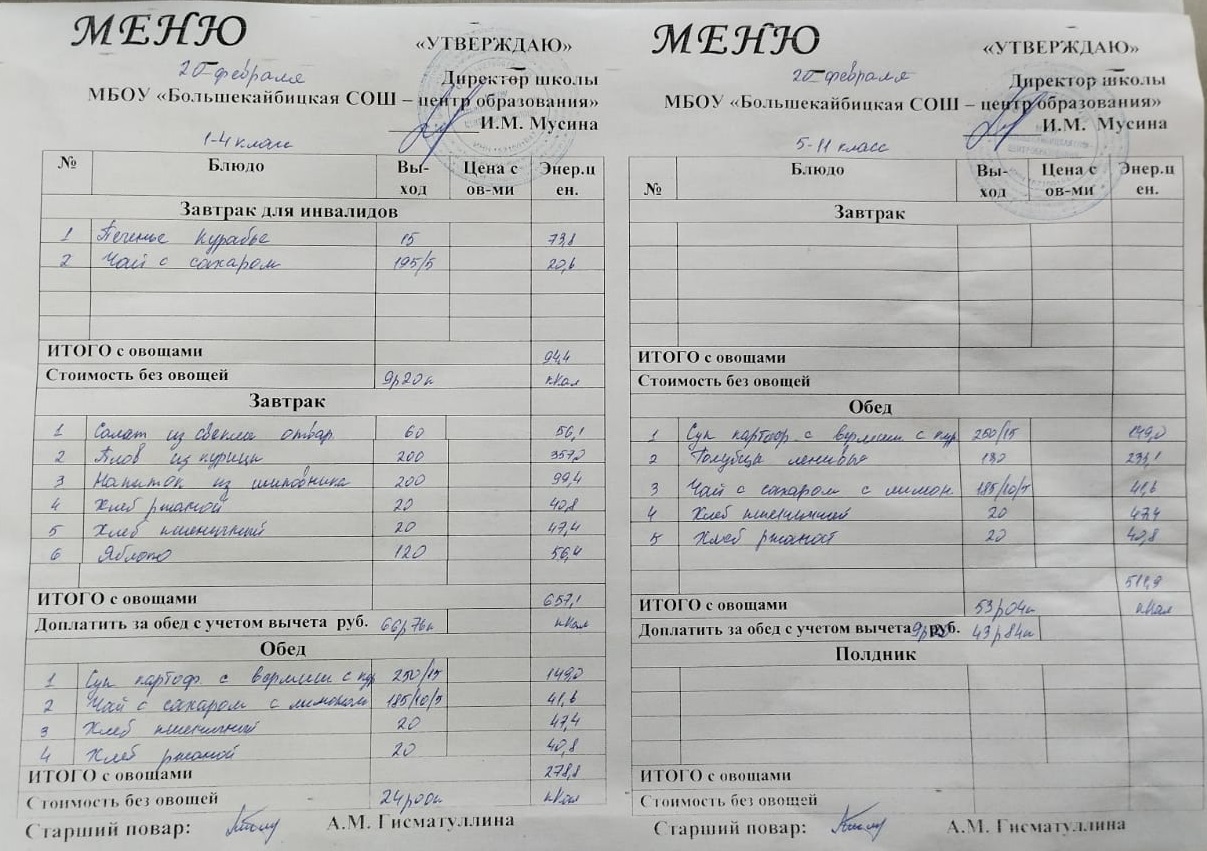 МЕНЮ
«УТВЕРЖДАЮ»
20 февраля
Директор школы
МБОУ «Большекайбицкая СОШ – центр образования»
И.М. Мусина
1-4 класс
№ Блюдо Вы-ход Цена с ов-ми Энер.ц ен.
Завтрак для инвалидов
1 Печенье Курабье 15 73,8
2 Чай с сахаром 195/5 20,6
ИТОГО с овощами 94,4
Стоимость без овощей 9р20к кКал
Завтрак
1 Салат из свеклы отвар. 60 56,1
2 Плов из курицы 200 357,0
3 Напиток из шиповника 200 99,4
4 Хлеб ржаной 20 40,8
5 Хлеб пшеничный 20 47,4
6 Яблоко 120 56,4
ИТОГО с овощами 657,1
Доплатить за обед с учетом вычета руб. 66р76к кКал
Обед
1 Суп картоф. с вермиш с кур 250/15 149,0
2 Чай с сахаром с лимоном 185/10/5 41,6
3 Хлеб пшеничный 20 47,4
4 Хлеб ржаной 20 40,8
ИТОГО с овощами 278,8
Стоимость без овощей 24р00к кКал
Старший повар: А.М. Гисматуллина
МЕНЮ
«УТВЕРЖДАЮ»
20 февраля
Директор школы
МБОУ «Большекайбицкая СОШ – центр образования»
И.М. Мусина
5-11 класс
№ Блюдо Вы-ход Цена с ов-ми Энер.ц ен.
Завтрак
ИТОГО с овощами
Стоимость без овощей
Обед
1 Суп картоф. с вермиш с кур 250/15 149,0
2 Голубцы ленивые 233,1
3 Чай с сахаром с лимон. 185/10/5 41,6
4 Хлеб пшеничный 20 47,4
5 Хлеб ржаной 20 40,8
511,9
ИТОГО с овощами 53р04к кКал
Доплатить за обед с учетом вычета руб. 43р84к
Полдник
ИТОГО с овощами
Стоимость без овощей
Старший повар: А.М. Гисматуллина